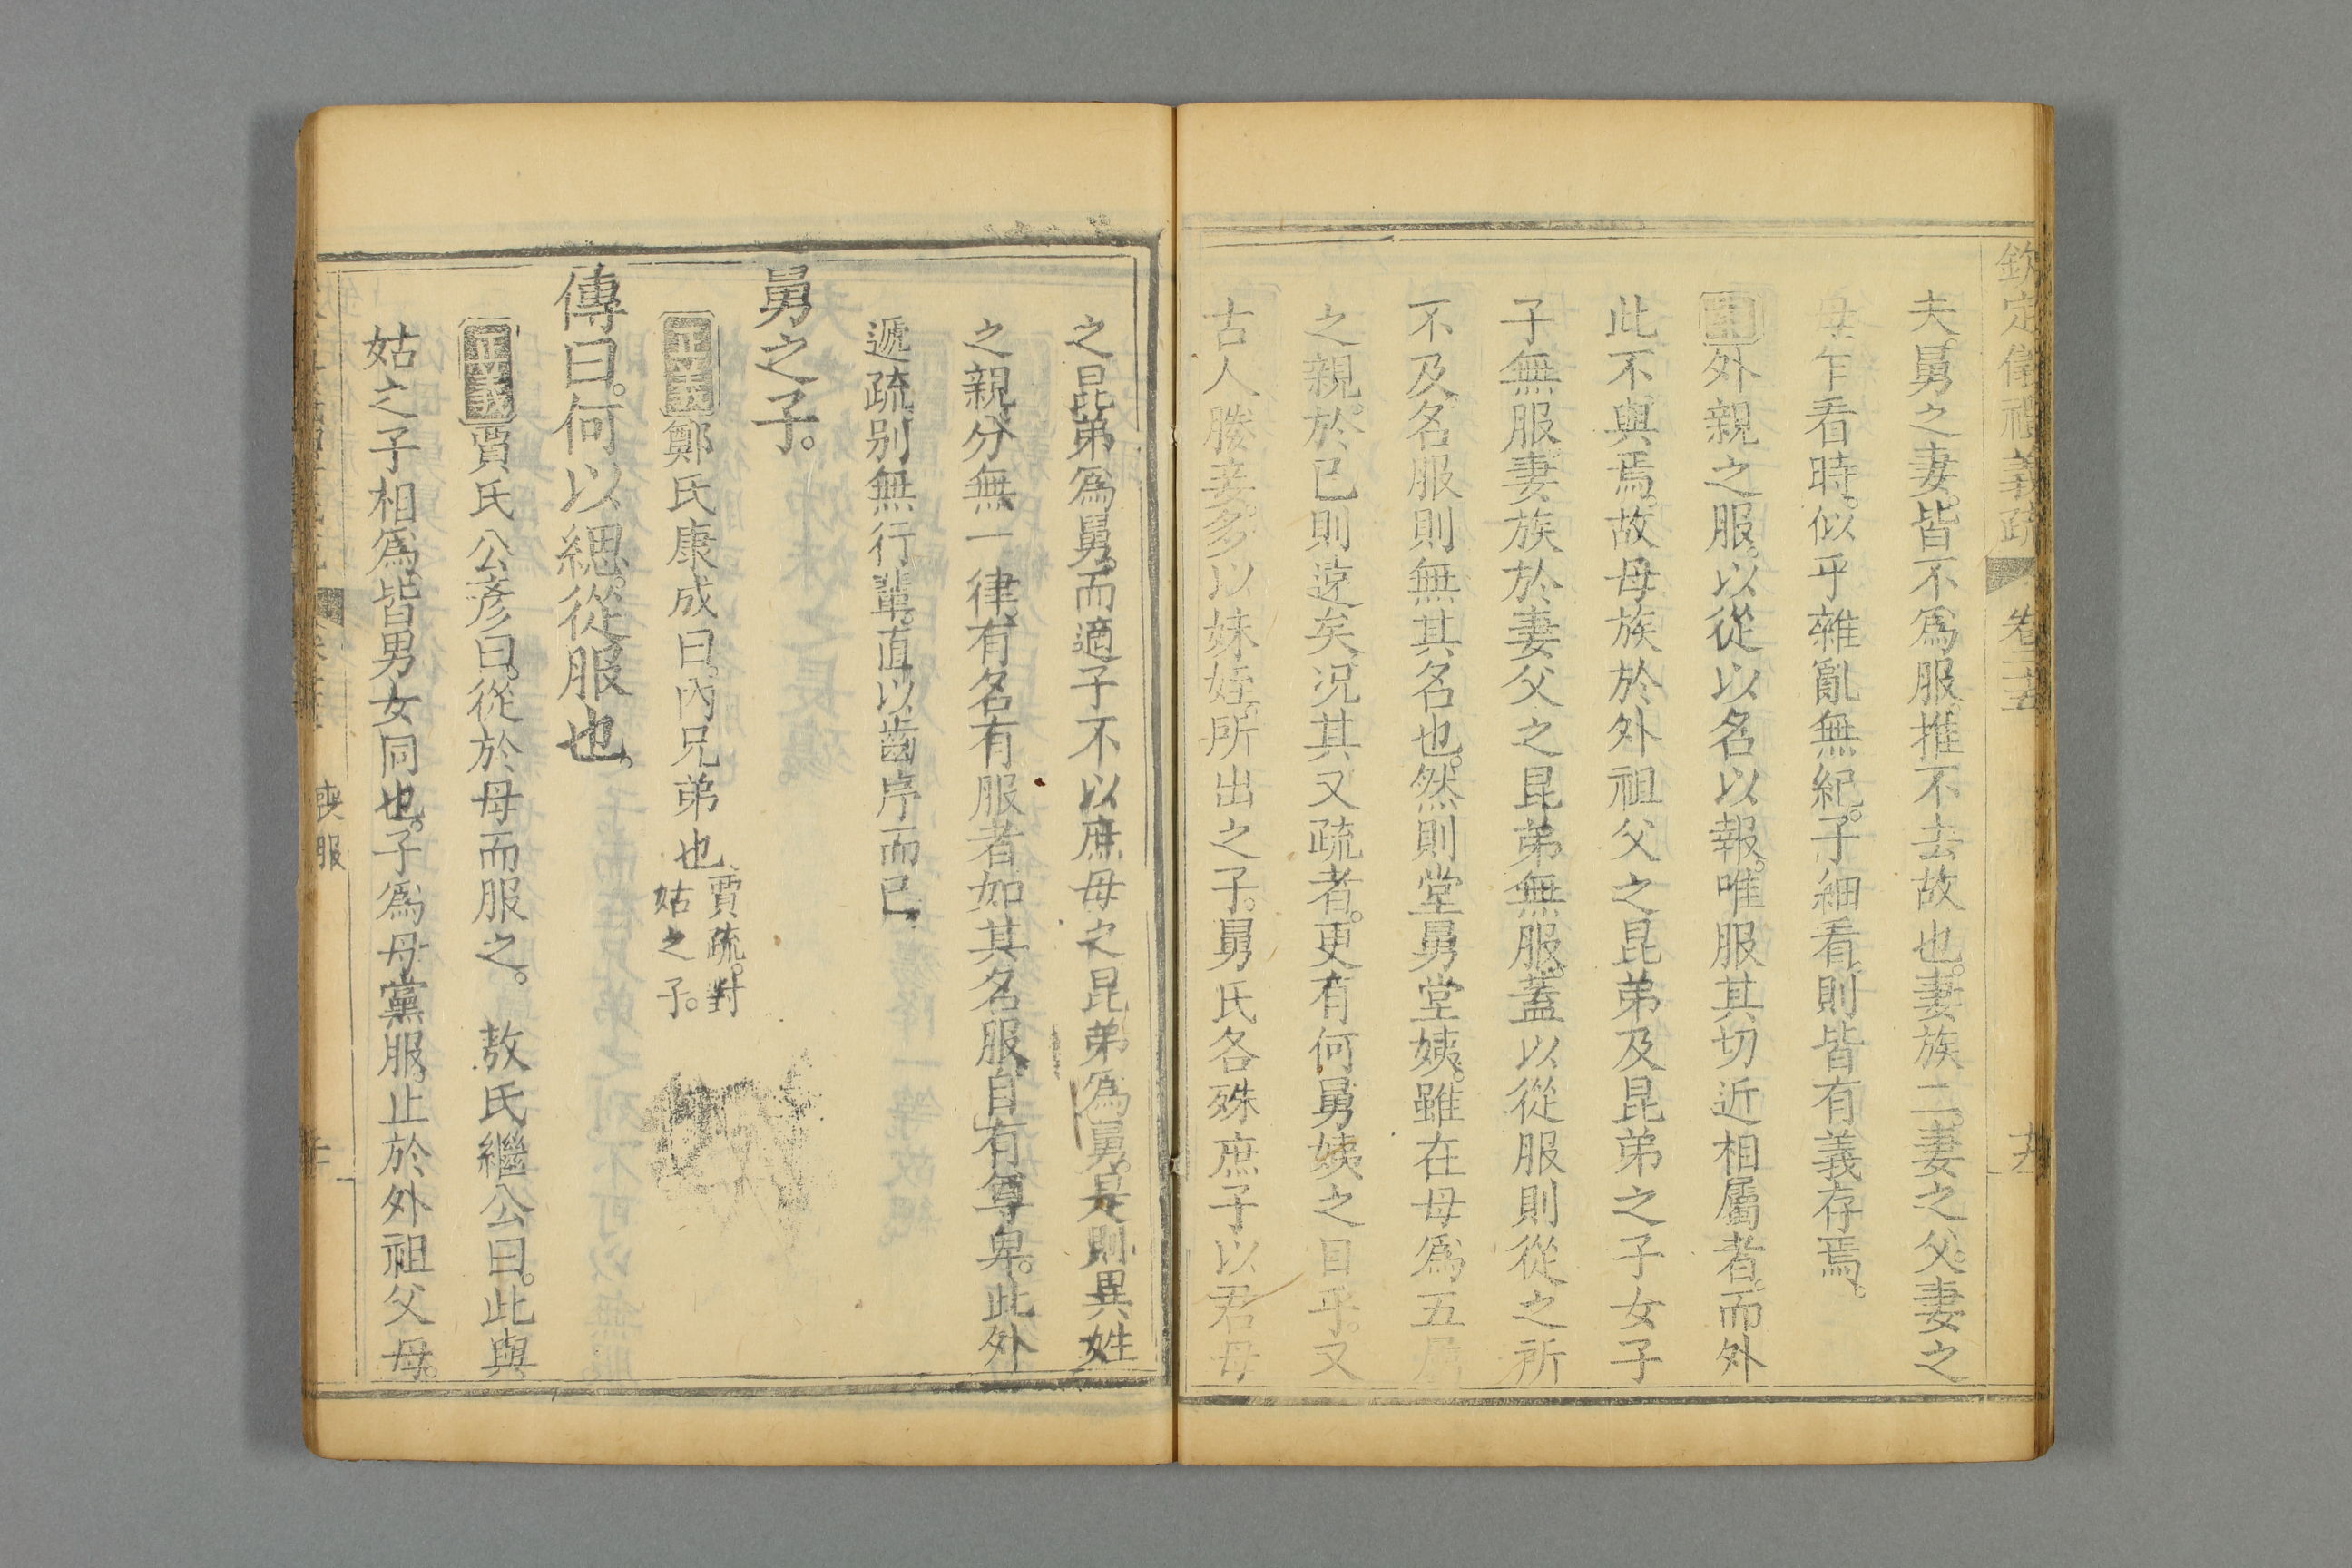 欽定儀禮義疏 卷二十五
夫。舅之妻。皆不爲服。推不去故也。妻族二。妻之父。妻之
母。乍看時。似乎雜亂無紀。子細看。則皆有義存焉。
案外親之服。以從以名以報。唯服其切近相屬者。而外
此不與焉。故母族於外祖父之昆弟及昆弟之子女子
子無服。妻族於妻父之昆弟無服。蓋以從服則從之所
不及。名服則無其名也。然則堂舅堂姨。雖在母爲五屬
之親。於己則遠矣。况其又疏者。更有何舅姨之目乎。又
古人媵妾。多以妹姪。所出之子。舅氏各殊。庶子以君母
之昆弟爲舅。而適子不以庶母之昆弟爲舅。是則異姓
之親。分無一律。有名有服者。如其名服。自有尊卑。此外
遞疏。别無行輩。直以齒序而已。
舅之子。
正義鄭氏康成曰。內兄弟也。賈疏。對
姑之子。
傳曰。何以緦。從服也。
正義賈氏公彥曰。從於母而服之。 敖氏繼公曰。此與
姑之子相爲。皆男女同也。子爲母黨服。止於外祖父母。
喪服